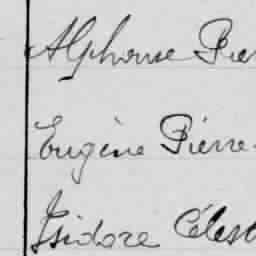 Alphonse Pier
Eugène Pierre
Isidore Célest